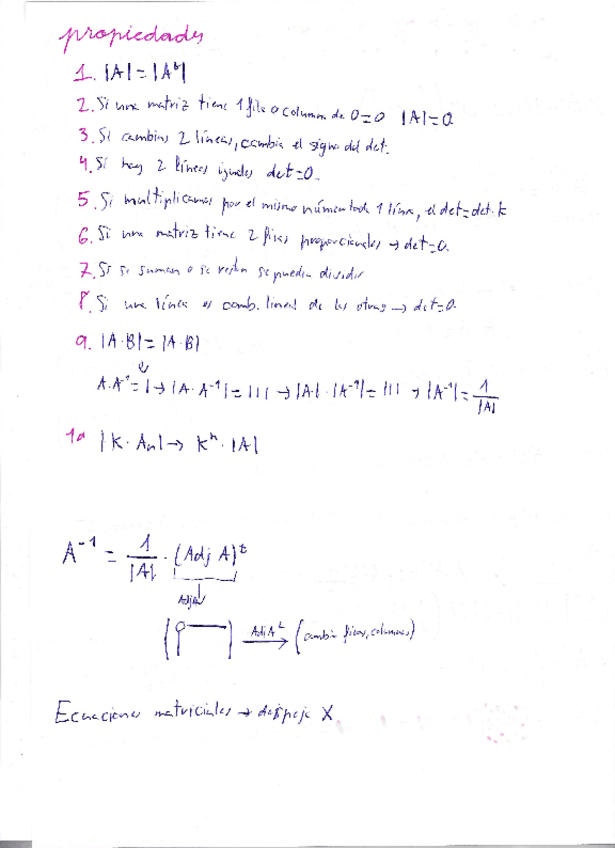 propiedades
1. |A|=|Aᵗ|
2. Si una matriz tiene 1 fila o columna de 0=0 |A|=0
3. Si cambias 2 líneas, cambia el signo del det.
4. Si hay 2 líneas iguales det=0.
5. Si multiplicamos por el mismo número toda 1 línea, el det=det.k
6. Si una matriz tiene 2 filas proporcionales → det=0.
7. Si se suman o se restan se pueden dividir
8. Si una línea es comb. lineal de las otras → det=0.
9. |A·B|=|A·B|
A·A⁻¹=I→|A·A⁻¹|=|I|→|A|·|A⁻¹|=|I|→|A⁻¹|=1/|A|
10 |k·Aₙ|→kⁿ·|A|
A⁻¹=1/|A|·(Adj A)ᵗ
AdjA
AdjAᵗ (cambia filas, columnas)
Ecuaciones matriciales → despeje X